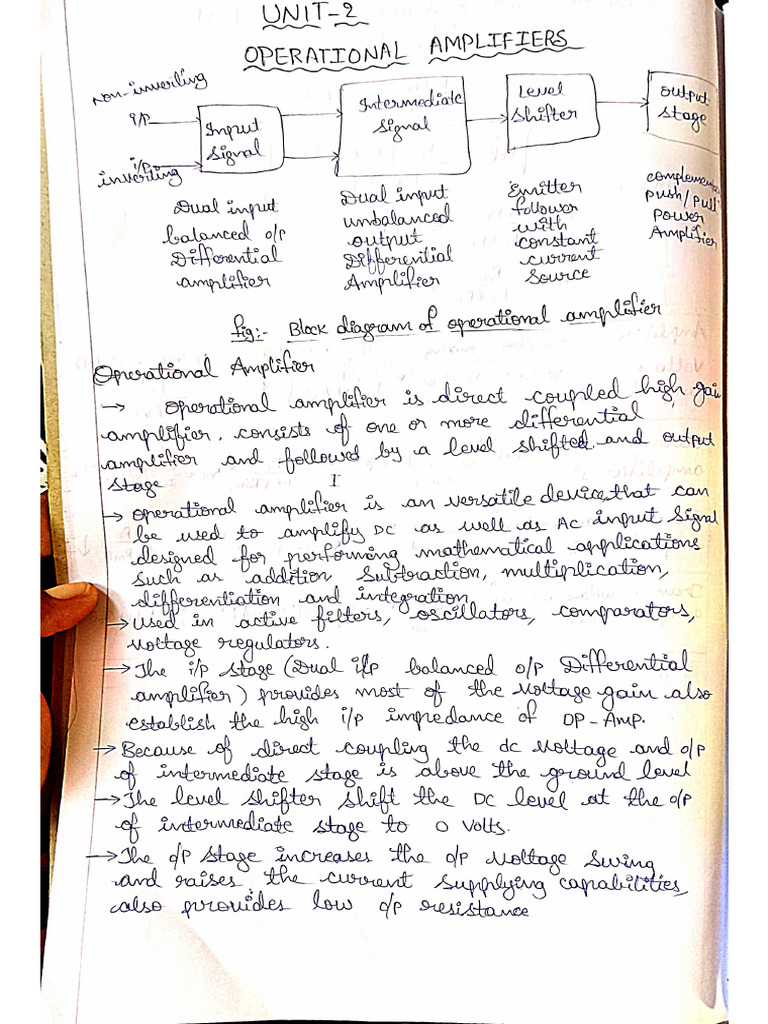 UNIT-2
OPERATIONAL AMPLIFIERS
Non-inverting
I/P
i/p
inverting
Input
Signal
Intermediate
Signal
Level
Shifter
Output
Stage
Dual input
balanced o/p
Differential
amplifier
Dual input
unbalanced
output
Differential
Amplifier
Emitter
follower
with
constant
current
Source
push/pull
Power
Amplifier
fig:- Block diagram of operational amplifier
Operational Amplifier
→ operational amplifier is direct coupled high gain
amplifier, consists of one or more differential
amplifier and followed by a level shifted and output
stage
→ operational amplifier is an versatile device, that can
be used to amplify DC as well as AC input signal
designed for performing mathematical applications
such as addition subtraction, multiplication,
differentiation and integration
→ used in active filters, oscillators, comparators,
voltage regulators.
→ The i/p stage (Dual i/p balanced o/p Differential
amplifier) provides most of the voltage gain also
establish the high i/p impedance of OP-Amp.
→ Because of direct coupling the dc voltage and o/p
of intermediate stage is above the ground level
→ The level shifter shift the DC level at the o/p
of intermediate stage to 0 volts.
→ The o/p stage increases the o/p voltage swing
and raises the current supplying capabilities,
also provides low o/p resistance